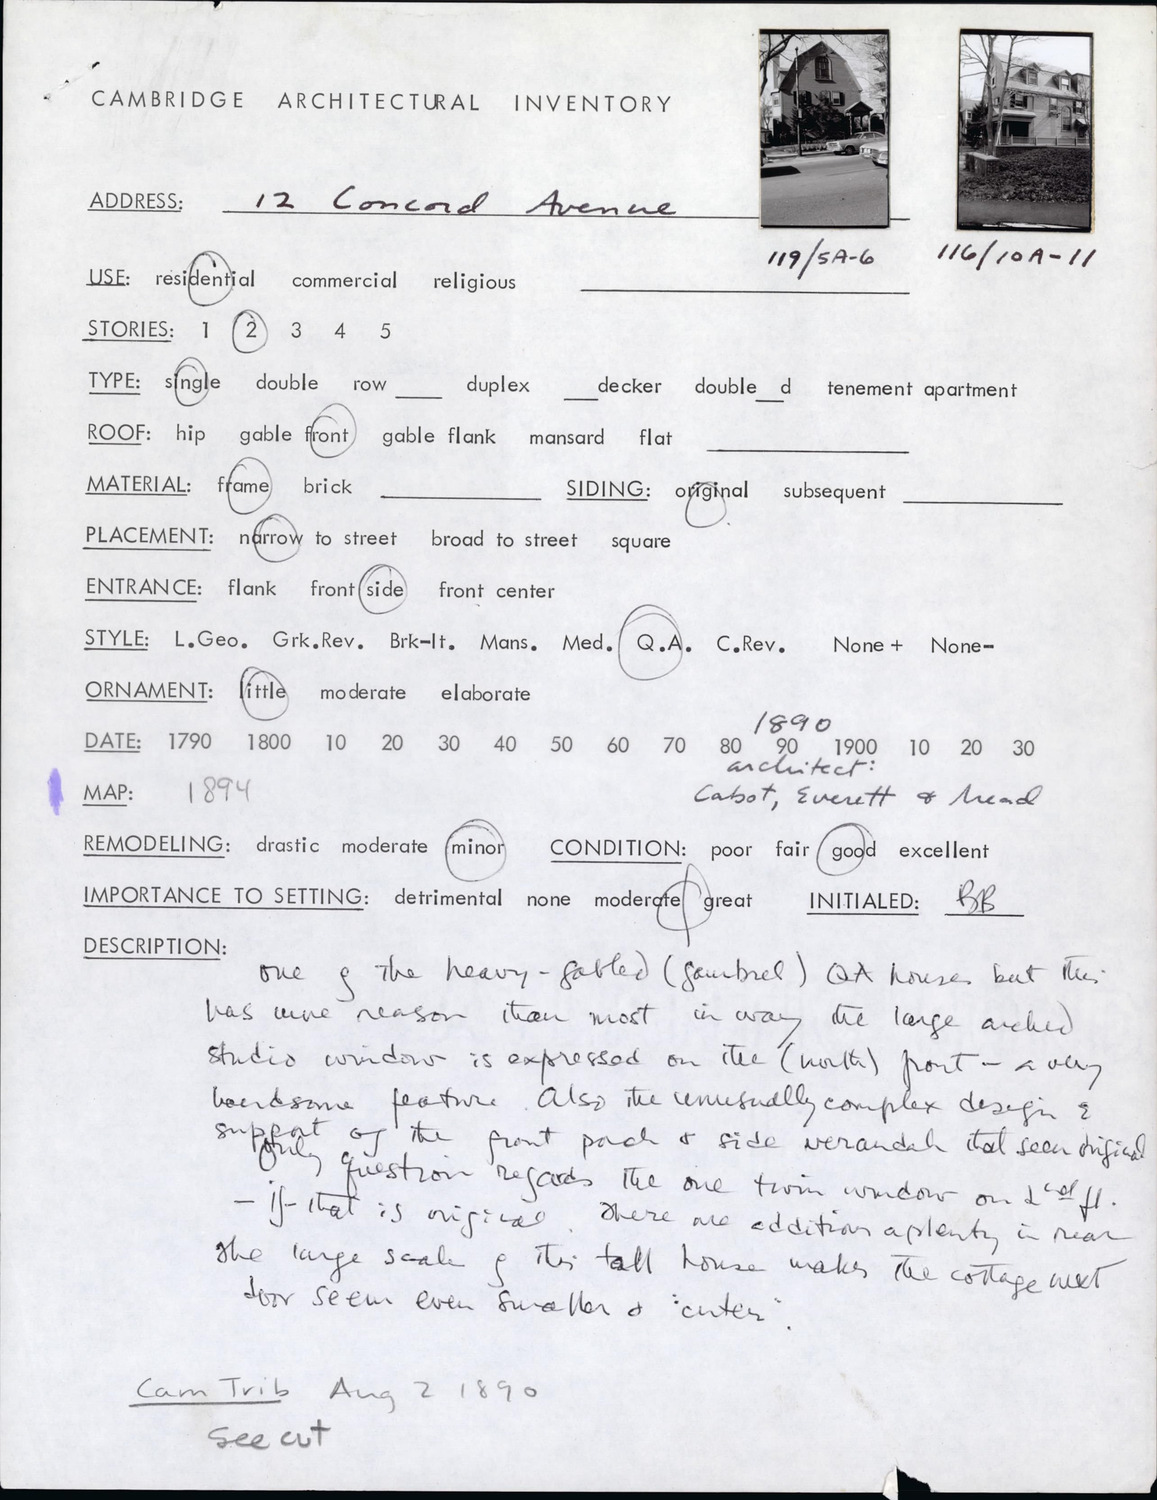 CAMBRIDGE ARCHITECTURAL INVENTORY
ADDRESS: 12 Concord Avenue
119/5A-6 116/10A-11
USE: residential commercial religious
STORIES: 1 2 3 4 5
TYPE: single double row ___ duplex ___decker double__d tenement apartment
ROOF: hip gable front gable flank mansard flat
MATERIAL: frame brick SIDING: original subsequent
PLACEMENT: narrow to street broad to street square
ENTRANCE: flank front side front center
STYLE: L.Geo. Grk.Rev. Brk-It. Mans. Med. Q.A. C.Rev. None+ None-
ORNAMENT: little moderate elaborate
1890
DATE: 1790 1800 10 20 30 40 50 60 70 80 90 1900 10 20 30
architect:
MAP: 1894 Cabot, Everett & Mead
REMODELING: drastic moderate minor CONDITION: poor fair good excellent
IMPORTANCE TO SETTING: detrimental none moderate great INITIALED: BB
DESCRIPTION:
one of the heavy-gabled (gambrel) QA houses but this
has more reason than most in way the large arched
studio window is expressed on the (north) front - a very
handsome feature. Also the unusually complex design &
support of the front porch & side verandah that seem original
Only question regards the one twin window on 2nd fl.
- if that is original. There are additions aplenty in rear
The large scale of this tall house makes the cottage next
door seem even smaller & "cuter".
Cam Trib Aug 2 1890
see cut